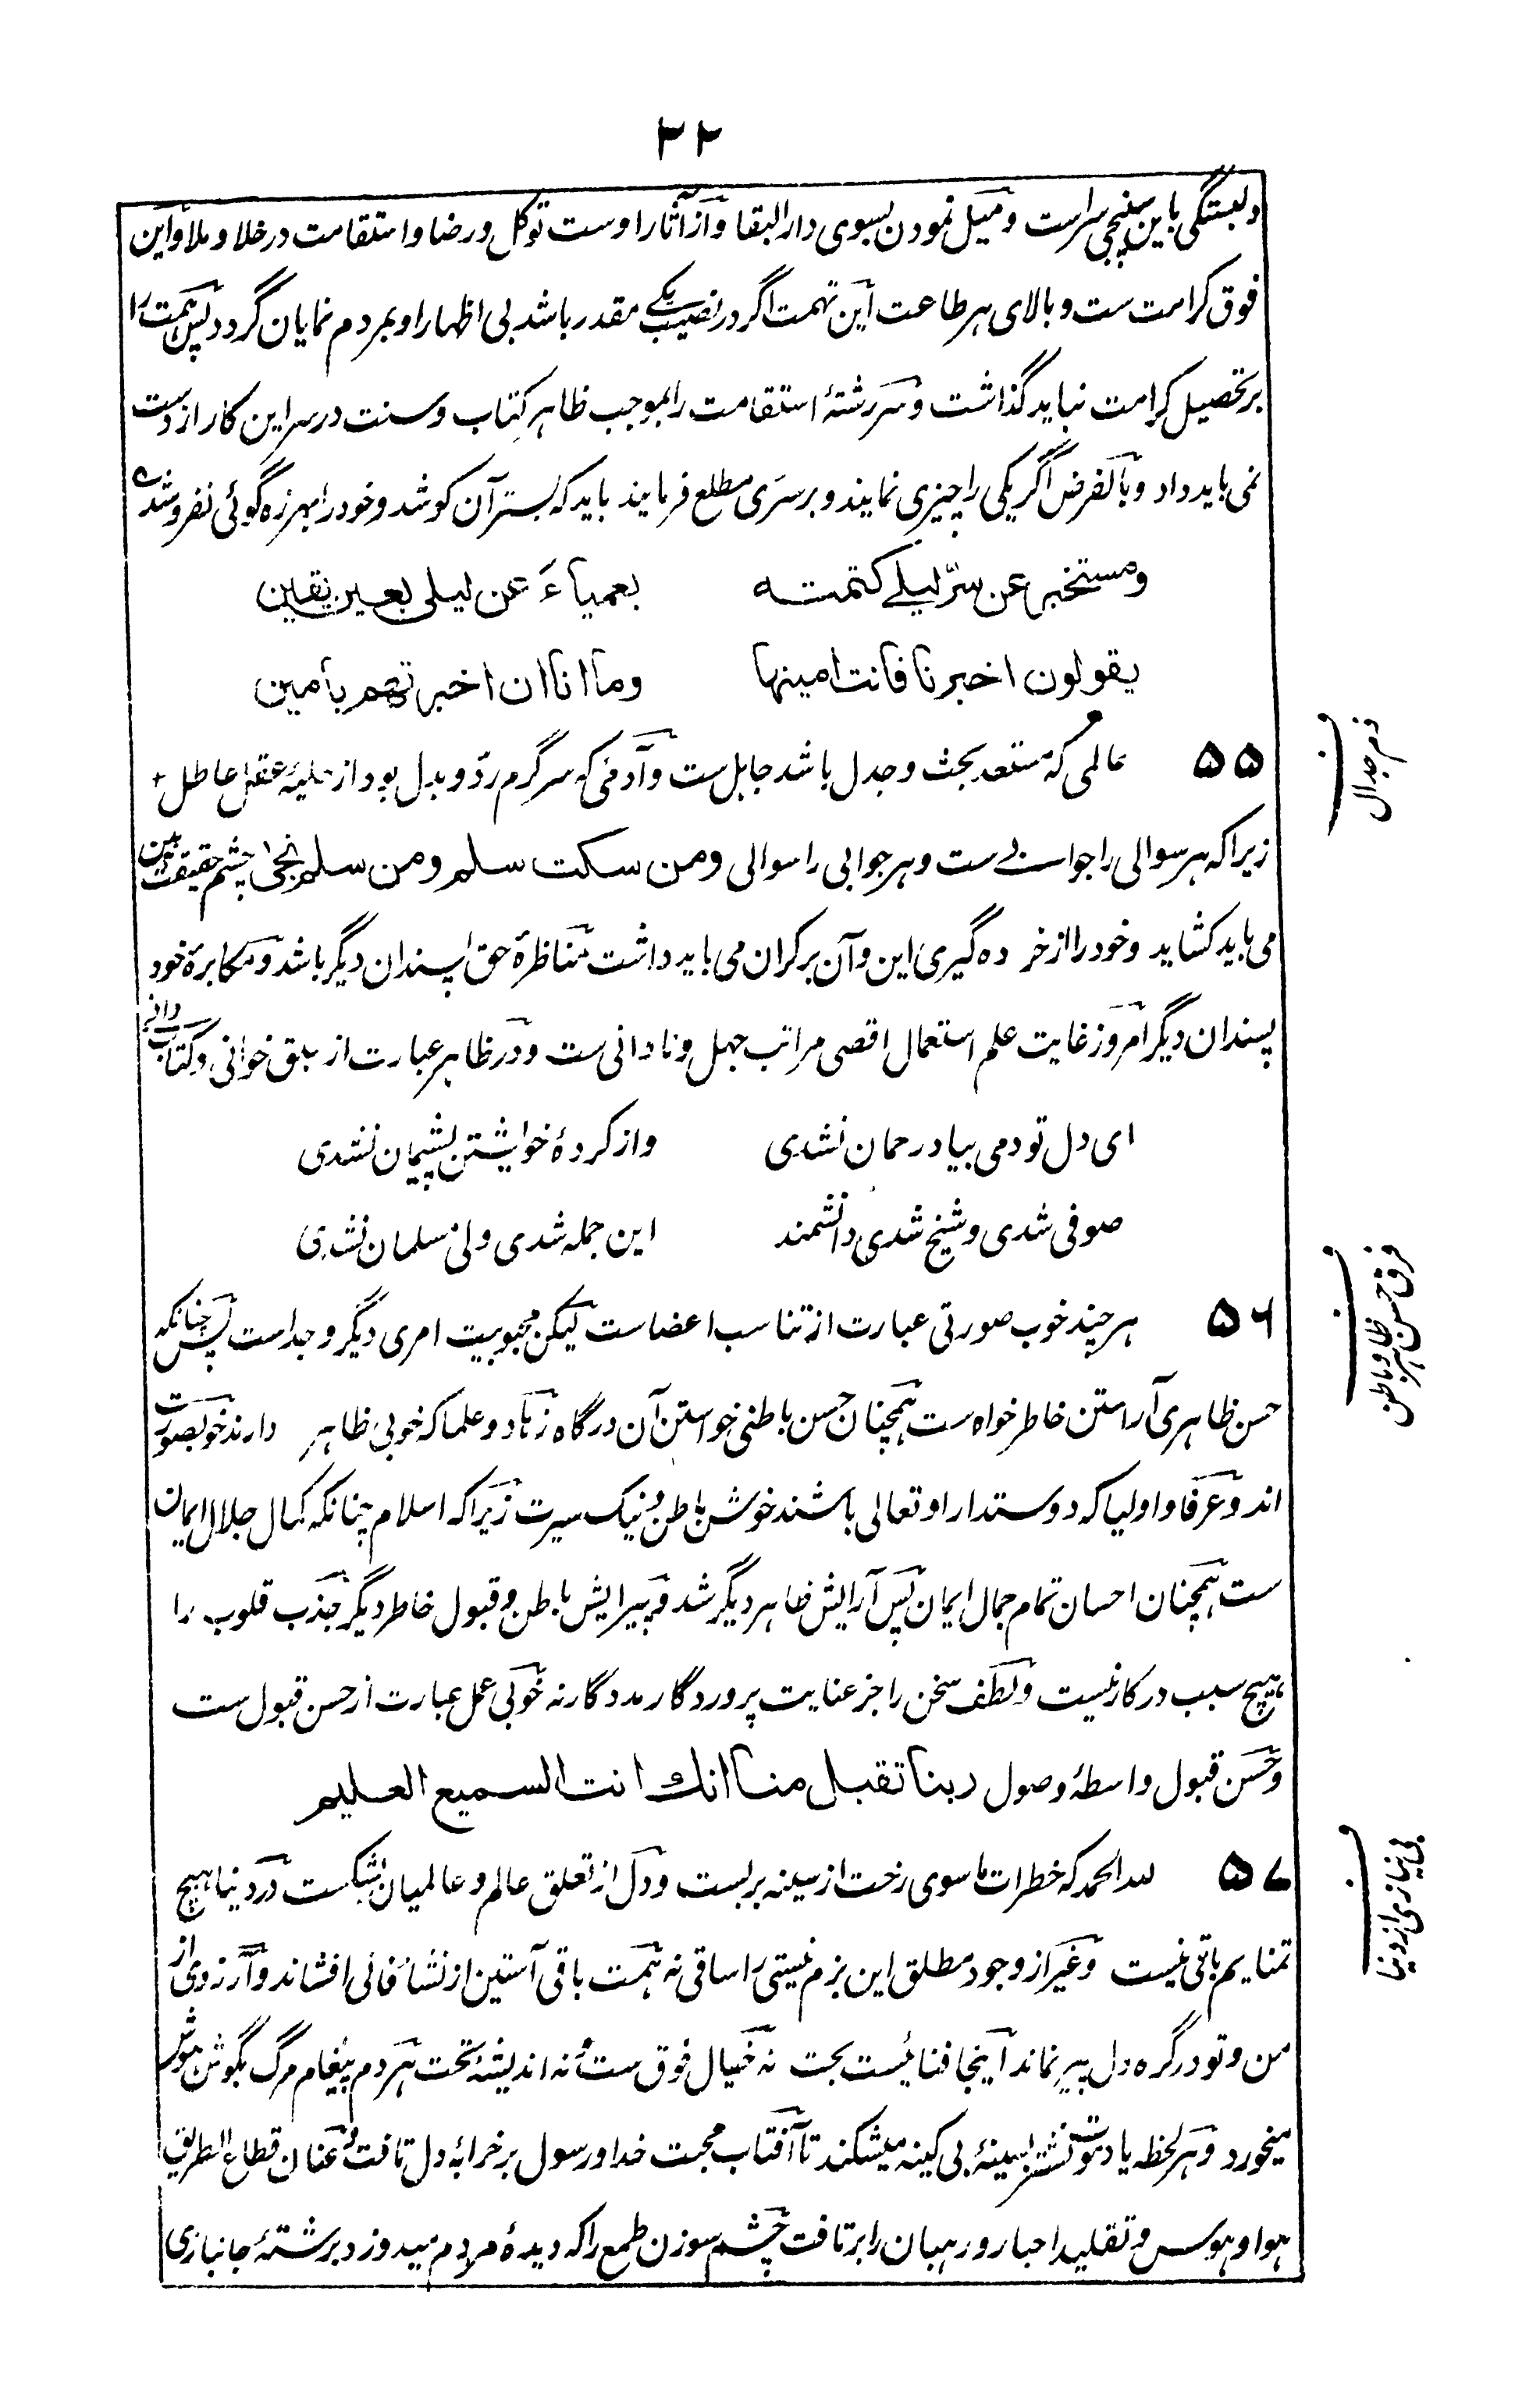 ۳۲
دلبستگی باین سپنجی سراست و میل نمودن بسوی دارالبقا و از آثار اوست توکل و رضا و استقامت در خلا و ملا و این
فوق کرامت ست و بالای هر طاعت این تهمت اگر در نصیب یکے مقدر باشد بی اظهار او بمردم نمایان گردد پس همت را
بر تحصیل کرامت نباید گذاشت و سررشتهٔ استقامت را بموجب ظاهر کتاب و سنت در سر این کار از دست
نمی باید داد و بالفرض اگر یکی را چیزی نمایند و بر سری مطلع فرمایند باید که بستر آن کوشد و خود را بهرزه گوئی نفروشد ے
ومستخبر عن سرّ لیلے کتمته بعمیاءَ عن لیلی بعیر یقین
یقولون اخبرنا فانت امینها وما انا ان اخبرتهم بامین
ذم جدال
۵۵ عالمی که مستعد بحث و جدل باشد جاهل ست و آدمی که سرگرم ردّ و بدل بود از حلیهٔ عقل عاطل
زیرا که هر سوالی را جوابے ست و هر جوابی را سوالی ومن سکت سلم ومن سلم نجیٰ چشم حقیقت بین
می باید کشاید و خود را از خرده گیری این و آن بر کران می باید داشت مناظرهٔ حق پسندان دیگر باشد و مکابرهٔ خود
پسندان دیگر امروز غایت علم استعمال اقصی مراتب جهل و نادانی ست و در ظاهر عبارت از سبق خوانی و کتاب دانے
ای دل تو دمی بیاد رحمان نشدی و از کردهٔ خویشتن پشیمان نشدی
صوفی شدی و شیخ شدی دانشمند این جمله شدی ولی مسلمان نشدی
فرق حسن ظاهر و باطن
۵۶ هر چند خوب صورتی عبارت از تناسب اعضاست لیکن محبوبیت امری دیگر و جداست پس چنانکه
حسن ظاهری آراستن خاطرخواه ست همچنان حسن باطنی خواستن آن درگاه زهاد و علما که خوبی ظاهر دارند خوبصورت
اند و عرفا و اولیا که دوستدار او تعالی باشند خوش باطن و نیک سیرت زیرا که اسلام چنانکه کمال جلال ایمان
ست همچنان احسان تمام جمال ایمان پس آرایش ظاهر دیگر شد و پیرایش باطن و قبول خاطر دیگر جذب قلوب را
هیچ سبب در کار نیست و لطف سخن را جز عنایت پروردگار مددگار نه خوبی عمل عبارت از حسن قبول ست
و حسن قبول واسطهٔ وصول ربنا تقبل منا انك انت السمیع العلیم
بی نیازی از دنیا
۵۷ لله الحمد که خطرات ماسوی رخت از سینه بربست و دل از تعلق عالم و عالمیان بشکست در دنیا هیچ
تمنایم باقی نیست و غیر از وجود مطلق این بزم نیستی را ساقی نه همت باقی آستین از نشاء فانی افشاند و آرزوی از
من و تو در گره دل پیر نماند اینجا فنائیست بحت نه خیال فوق ست و نه اندیشهٔ تحت هر دم پیغام مرگ بگوش هوش
میخورد و هر لحظه یاد موت نشتر بسینهٔ بی کینه میشکند تا آفتاب محبت خدا و رسول بر خرابهٔ دل تافت و عنان قطاع الطریق
هوا و هوس و تقلید احبار و رهبان را برتافت چشم سوزن طمع را که دیدهٔ مردم میدوزد برشتهٔ جانبازی